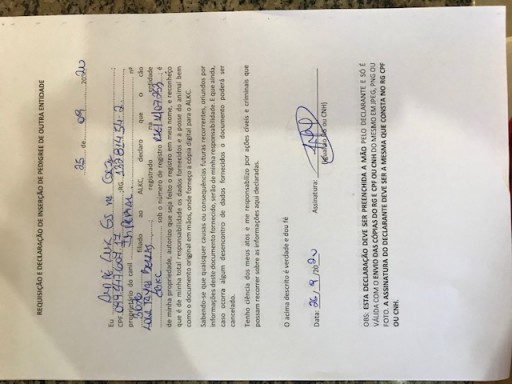 REQUISIÇÃO E DECLARAÇÃO DE INSERÇÃO DE PEDIGREE DE OUTRA ENTIDADE
25 de 09 2020
Eu
CPF RG
proprietário do canil nº
filiado ao ALKC, declaro que o cão
registrado na entidade
sob o número de registro é
de minha propriedade, autorizo que seja feito o registro em meu nome, e reconheço
que é de minha total responsabilidade os dados fornecidos e a posse do animal bem
como o documento original em mãos, onde forneço a cópia digital para o ALKC.
Sabendo-se que quaisquer causas ou consequências futuras recorrentes, oriundas por
informações deste documento fornecido, serão de minha responsabilidade. E que ainda,
caso ocorra algum desencontro de dados fornecidos o documento poderá ser
cancelado.
Tenho ciência dos meus atos e me responsabilizo por ações cíveis e criminais que
possam recorrer sobre as informações aqui declaradas.
O acima descrito é verdade e dou fé
Data: 25/9/2020 Assinatura:
OBS: ESTA DECLARAÇÃO DEVE SER PREENCHIDA A MÃO PELO DECLARANTE E SÓ É
VÁLIDA COM O ENVIO DAS CÓPIAS DO RG E CPF OU CNH DO MESMO EM JPEG, PNG OU
FOTO. A ASSINATURA DO DECLARANTE DEVE SER A MESMA QUE CONSTA NO RG CPF
OU CNH.